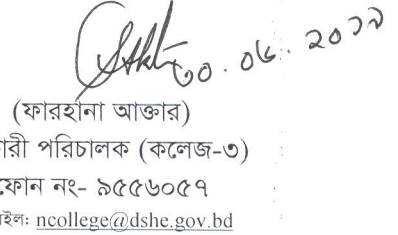 ৩০.০৬.২০১৯
(ফারহানা আক্তার)
ারী পরিচালক (কলেজ-৩)
ফোন নং- ৯৫৫৬০৫৭
ইল: ncollege@dshe.gov.bd